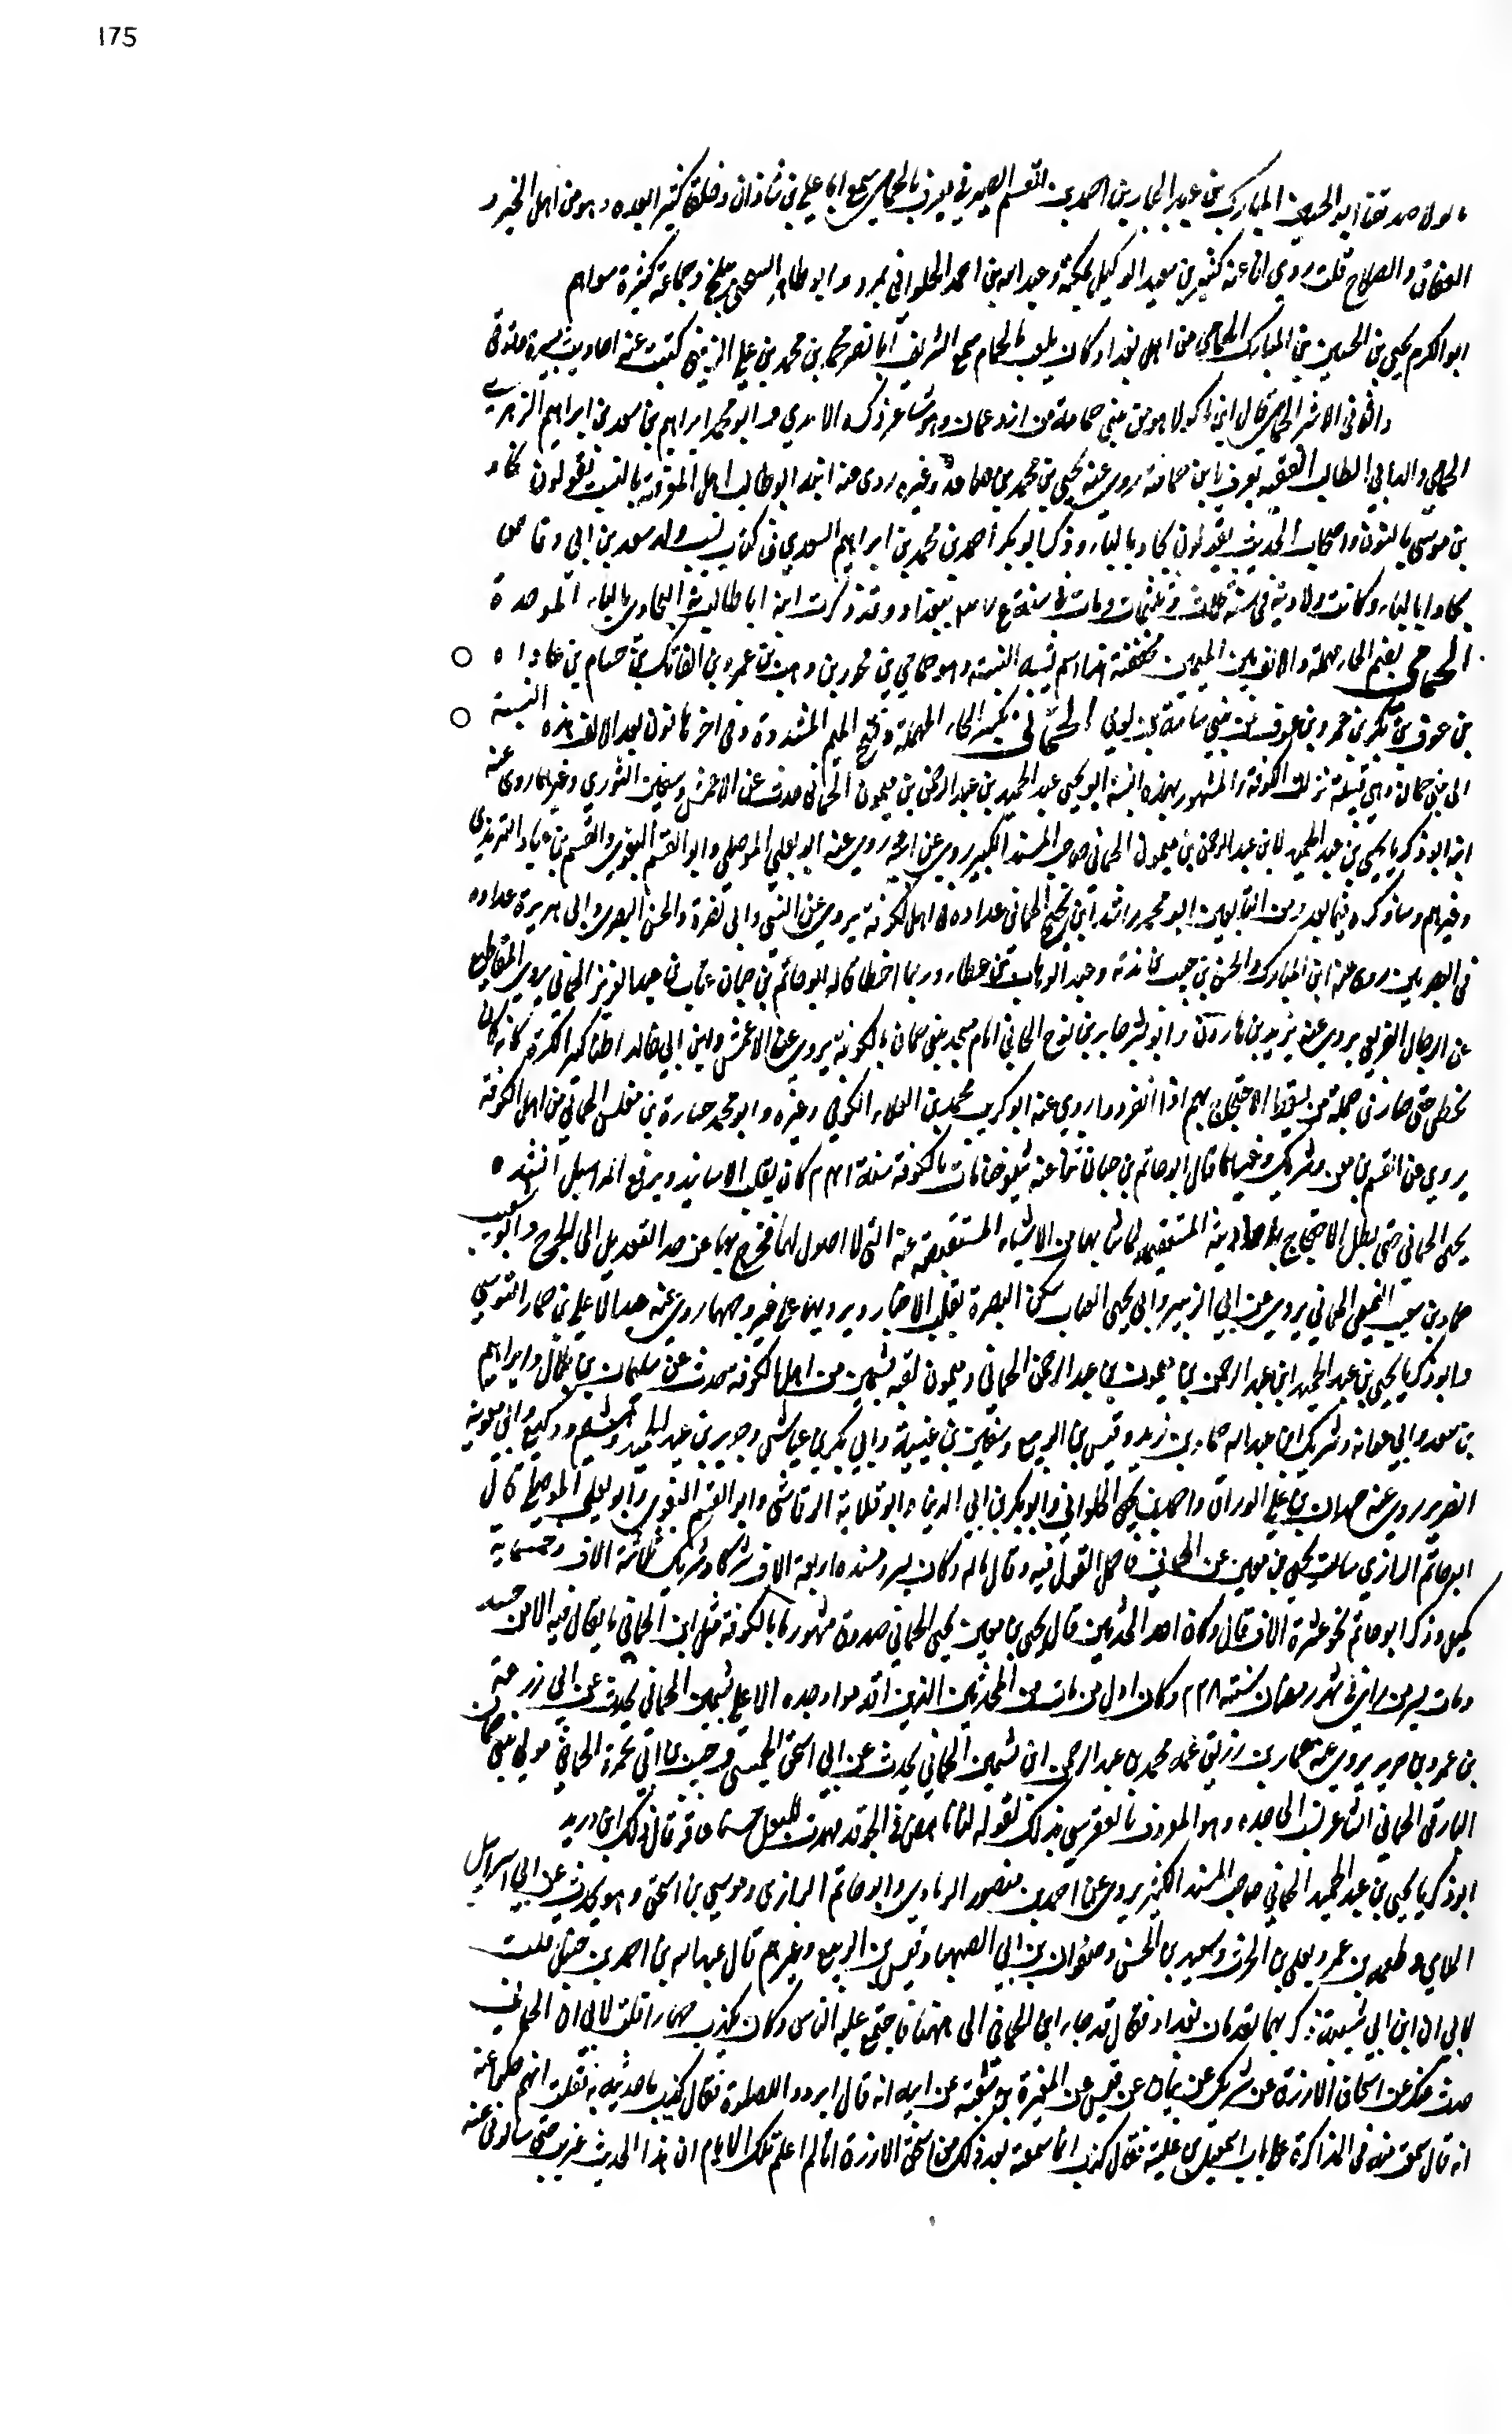 175
صدوقا ابو الحسين المبارك بن عبد الجبار بن احمد بن القسم الصيرفي يعرف بالحمامي سمع ابا علي بن شاذان وخلقا كثيرا بعده وهو من اهل الخير و
العفاف والصلاح قلت روى لنا عنه كثير بن سعيد الوكيل بمكة وعبد الله بن احمد الحلواني بمرو وابو طاهر السنجي ببلخ وجماعة كثيرة سواهم
ابو الكرم يحيى بن الحسين بن المبارك الحمامي من اهل بغداد كان يلقب بالحمام سمع الشريف ابا نصر محمد بن محمد بن علي الزينبي كتبت عنه احاديث يسيرة
والثاني الحمامي قال ابن ماكولا هو من بني حمامة من ازد عمان وهو شاعر ذكره الامدي وابو محمد ابراهيم بن سعد بن ابراهيم الزهري
الحمامي الفقيه يعرف بابن حمامة روى عنه يحيى بن محمد بن صاعد وغيره روى عنه ابنه ابو طالب اهل المعرفة بالنسب يقولون
بن موسى بالنون واصحاب الحديث يقولون بجاد بالباء وذكر ابو بكر احمد بن محمد بن ابراهيم السعدي في كتاب نسب ولد سعد بن ابي وقاص
بجادا بالباء وكانت ولادته في سنة ومات في سنة ببغداد وقد ذكرت ابنه ابا طالب في البجادي بالباء الموحدة
الحمامي بضم الحاء مهملة والالف بين الميمين مخففة هذا اسم يشبه النسبة وهو حمامي بن وهب بن عمرو بن الفاتك بن
بن عوف بن بكر بن عمرو بن عوف من بني سامة بن لوي الحماني بكسر الحاء المهملة وفتح الميم المشددة وفي اخرها نون بعد الالف هذه النسبة
الى بني حمان وهي قبيلة نزلت الكوفة والمشهور بهذه النسبة ابو يحيى عبد الحميد بن عبد الرحمن بن ميمون الحماني حدث عن الاعمش وسفين الثوري وغيرهما روى عنه
ابنه ابو زكريا يحيى بن عبد الحميد بن عبد الرحمن بن ميمون الحماني صاحب المسند الكبير روى عن ابيه روى عنه ابو يعلى الموصلي وابو القسم البغوي والقسم بن عباد الترمذي
وغيرهم وسنذكره فيما بعد ومن التابعين ابو محمد راشد ابن نجيح الحماني عداده في اهل الكوفة يروي عن انس وابي نضرة والحسن البصري وابي هريرة عداده
في البصريين روى عنه ابن المبارك والحسن بن حبيب بن ندبة وعبد الوهاب بن عطاء وربما اخطأ قاله ابو حاتم بن حبان عباب بن عبد العزيز الحماني يروي المقاطيع
عن الرحال القريعي يروي عنه يزيد بن هارون وابو بشر جابر بن نوح الحماني امام مسجد بني حمان بالكوفة يروي عن الاعمش وابن ابي خالد كان
يخطئ حتى صار في جملة من يسقط الاحتجاج بهم اذا انفردوا روى عنه ابو كريب محمد بن العلاء الكوفي وغيره وابو محمد جبارة بن مغلس الحماني من اهل الكوفة
يروي عن القسم بن معن وشريك وغيرهما قال ابو حاتم بن حبان ثنا عنه شيوخنا مات بالكوفة سنة ٢٤١ كان يقلب الاسانيد ويرفع المراسيل افسده
يحيى الحماني حتى بطل الاحتجاج باحاديثه المستقيمة لما شابها من الاشياء المستفيضة عنه التي لا اصول لها فخرج بها عن حد التعديل الى الجرح وابو شعيب
حماد بن شعيب التميمي الحماني يروي عن ابي الزبير وابي يحيى القتات سكن البصرة يقلب الاخبار ويرويها على غير وجهها روى عنه عبد الاعلى بن حماد النرسي
وابو زكريا يحيى بن عبد الحميد ابن عبد الرحمن بن ميمون بن عبد الرحمن الحماني وميمون لقبه بشمين من اهل الكوفة حدث عن سليمان بن بلال وابراهيم
بن سعد وابي عوانة وشريك ابن عبد الله حماد بن زيد وقيس بن الربيع وسفين بن عيينة وابي بكر بن عياش وجرير بن عبد الحميد وهشيم ووكيع وابي معوية
الضرير روى عنه حمدان بن علي الوراق واحمد بن يحيى الحلواني وابو بكر بن ابي الدنيا وابو قلابة الرقاشي وابو القسم البغوي وابو يعلى الموصلي قال
ابو حاتم الرازي سالت يحيى بن معين عن الحماني فاجمل القول فيه وقال ماله وكان يسرد مسنده اربعة الاف سردا وشريك ثلاثة الاف وخمسماية
كمثل وذكر ابو حاتم نحو عشرة الاف قال وكان احد المحدثين قال يحيى بن معين يحيى الحماني صدوق مشهور بالكوفة مثل ابن الحماني ما يقال فيه الا من حسد
ومات بسر من راى في شهر رمضان سنة ٢٢٨ وكان اول من مات من المحدثين الذين اقدموا وجده الاعلى بشمين الحماني يحدث عن ابي زرعة
بن عمرو بن جرير يروي عنه عمار بن رزيق عمه محمد بن عبد الرحمن ابن بشمين الحماني يحدث عن ابي اسحق الخميسي مولى بني حمان
البارقي الحماني الشاعر نسب الى جده وهو المعروف بذلك لقوله قال ذلك ابن دريد
ابو زكريا يحيى بن عبد الحميد الحماني صاحب المسند الكبير يروي عنه احمد بن منصور الرمادي وابو حاتم الرازي وموسى بن اسحق وهو يحدث عن ابي اسرايل
الملائي وطعمة بن عمرو ويعلى بن الحرث وسعيد بن الحسن وصفوان بن ابي الصهباء وقيس بن الربيع وغيرهم قال عبد الله بن احمد بن حنبل قلت
لابي ان ابن ابي شيبة ذكر انهما يقدمان بغداد فقال قد جاء ابن الحماني الى ههنا فاجتمع عليه الناس وكان يكذب جهارا قلت لابي ان الحماني
حدث عنك عن اسحاق الازرق عن شريك عن بيان عن قيس عن المغيرة بن شعبة عن النبي انه قال ابردوا بالصلوة فقال كذب ما حدثته به فقلت انهم حكوا عنه
انه قال سمعته منه في المذاكرة على باب اسمعيل بن علية فقال كذب انما سمعته بعد ذلك من اسحق الازرق انا لم اعلم تلك الايام ان هذا الحديث غريب حتى سالوني عنه